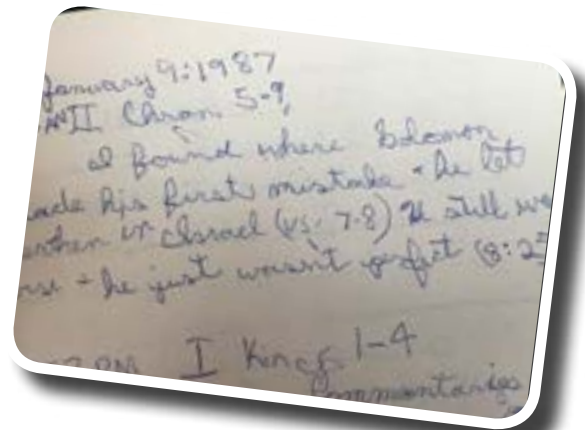 January 9:1987
II Chron 5-9,
I found where Solomon
made his first mistake - he let
in Israel (vs. 7-8) He still
- he just wasn't perfect (8:25
PM I Kings 1-4
Commentaries